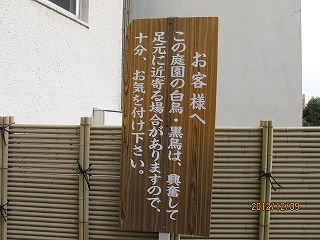 お客様へ
この庭園の白鳥・黒鳥は、興奮して
足元に近寄る場合がありますので、
十分、お気を付け下さい。
2013/12/09